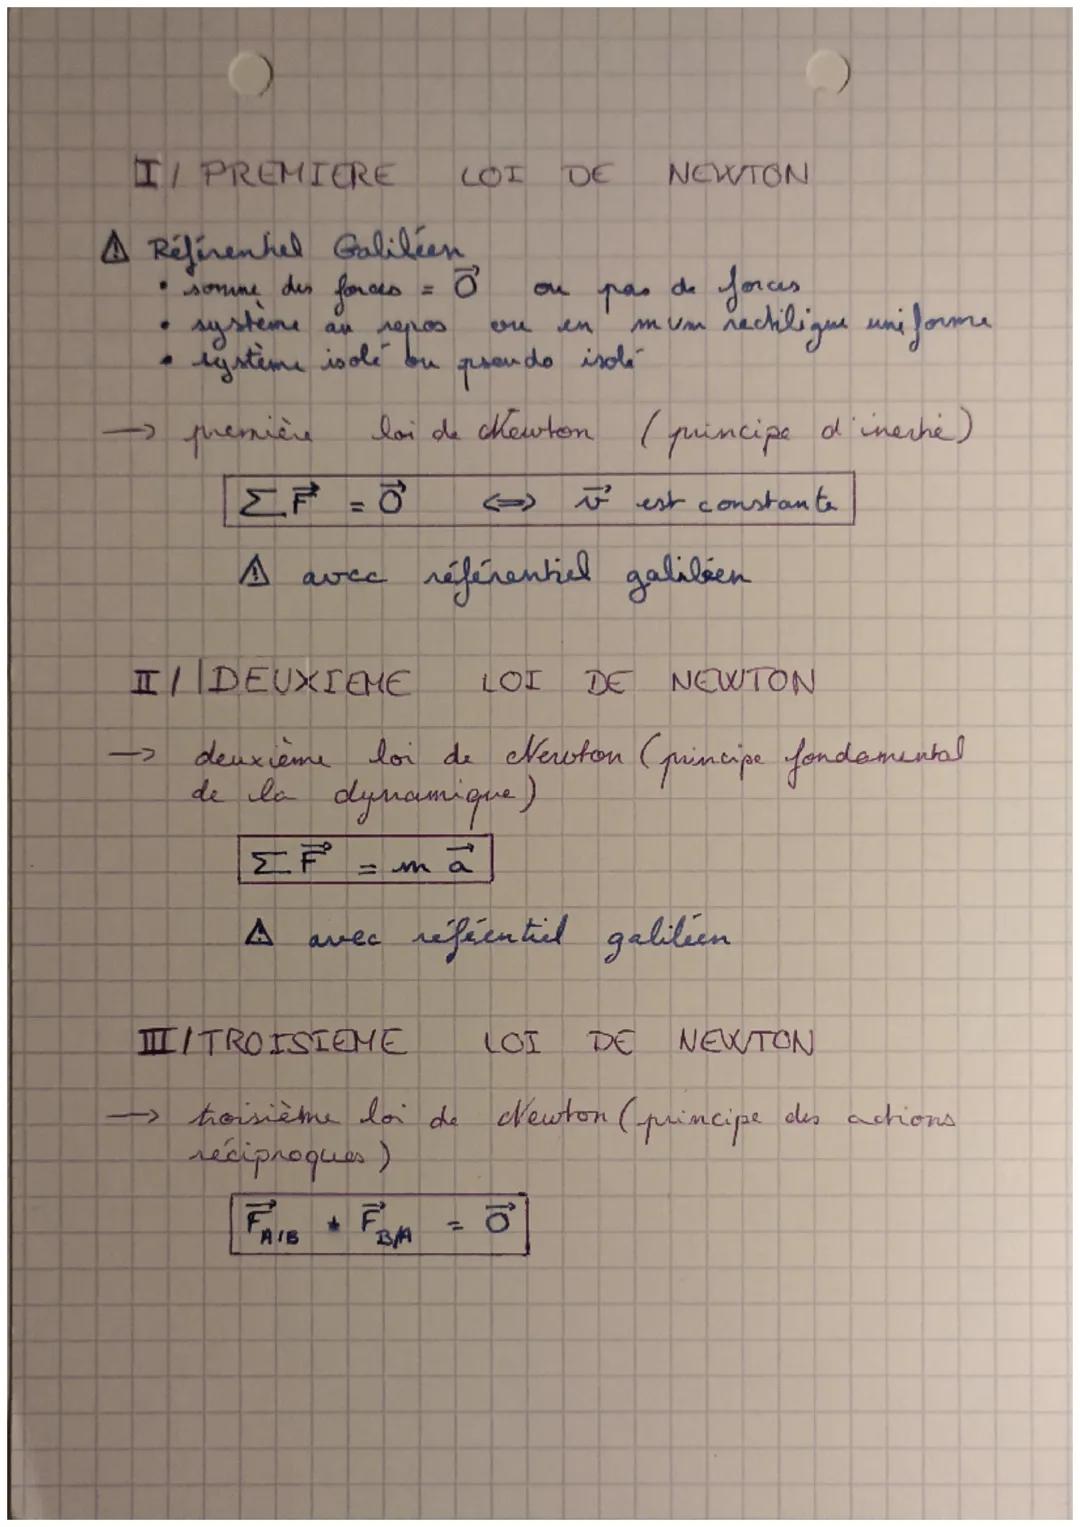 I/ PREMIERE LOI DE NEWTON
⚠ Référentiel Galiléen
• somme des forces = 0⃗ ou pas de forces
• système au repos ou en mvm rectiligne uniforme
• système isolé ou pseudo isolé
→ première loi de Newton (principe d'inertie)
∑F⃗ = 0⃗ ⇔ v⃗ est constante
⚠ avec référentiel galiléen
II/ DEUXIEME LOI DE NEWTON
→ deuxième loi de Newton (principe fondamental
de la dynamique)
∑F⃗ = m a⃗
⚠ avec référentiel galiléen
III/ TROISIEME LOI DE NEWTON
→ troisième loi de Newton (principe des actions
réciproques)
F⃗A/B + F⃗B/A = 0⃗